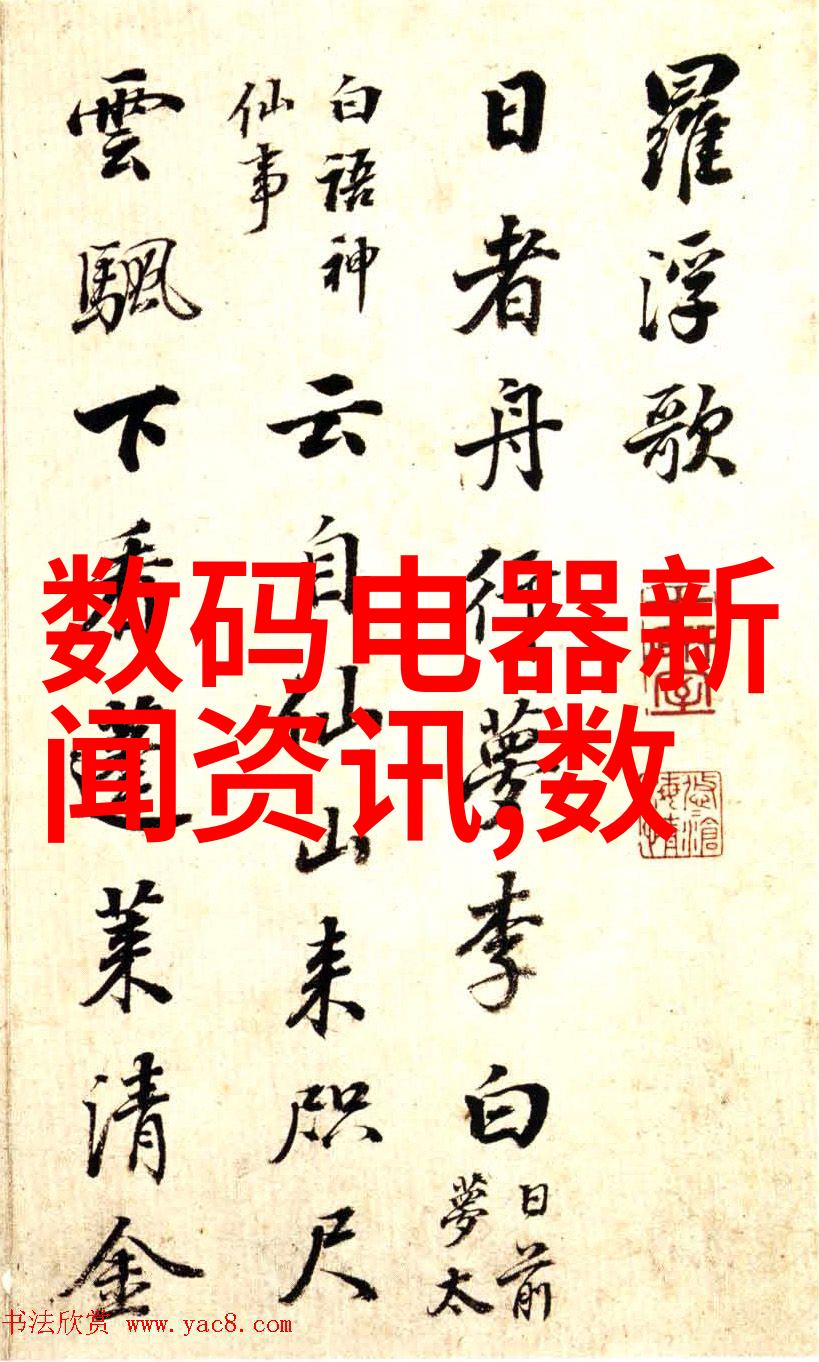 羅浮歌
日者舟行夢李白
日前
夢太
白語神
仙事
云自仙山来咫尺
雲颿下蓬莱清金
数码电器新
闻资讯,数
书法欣赏 www.yac8.com